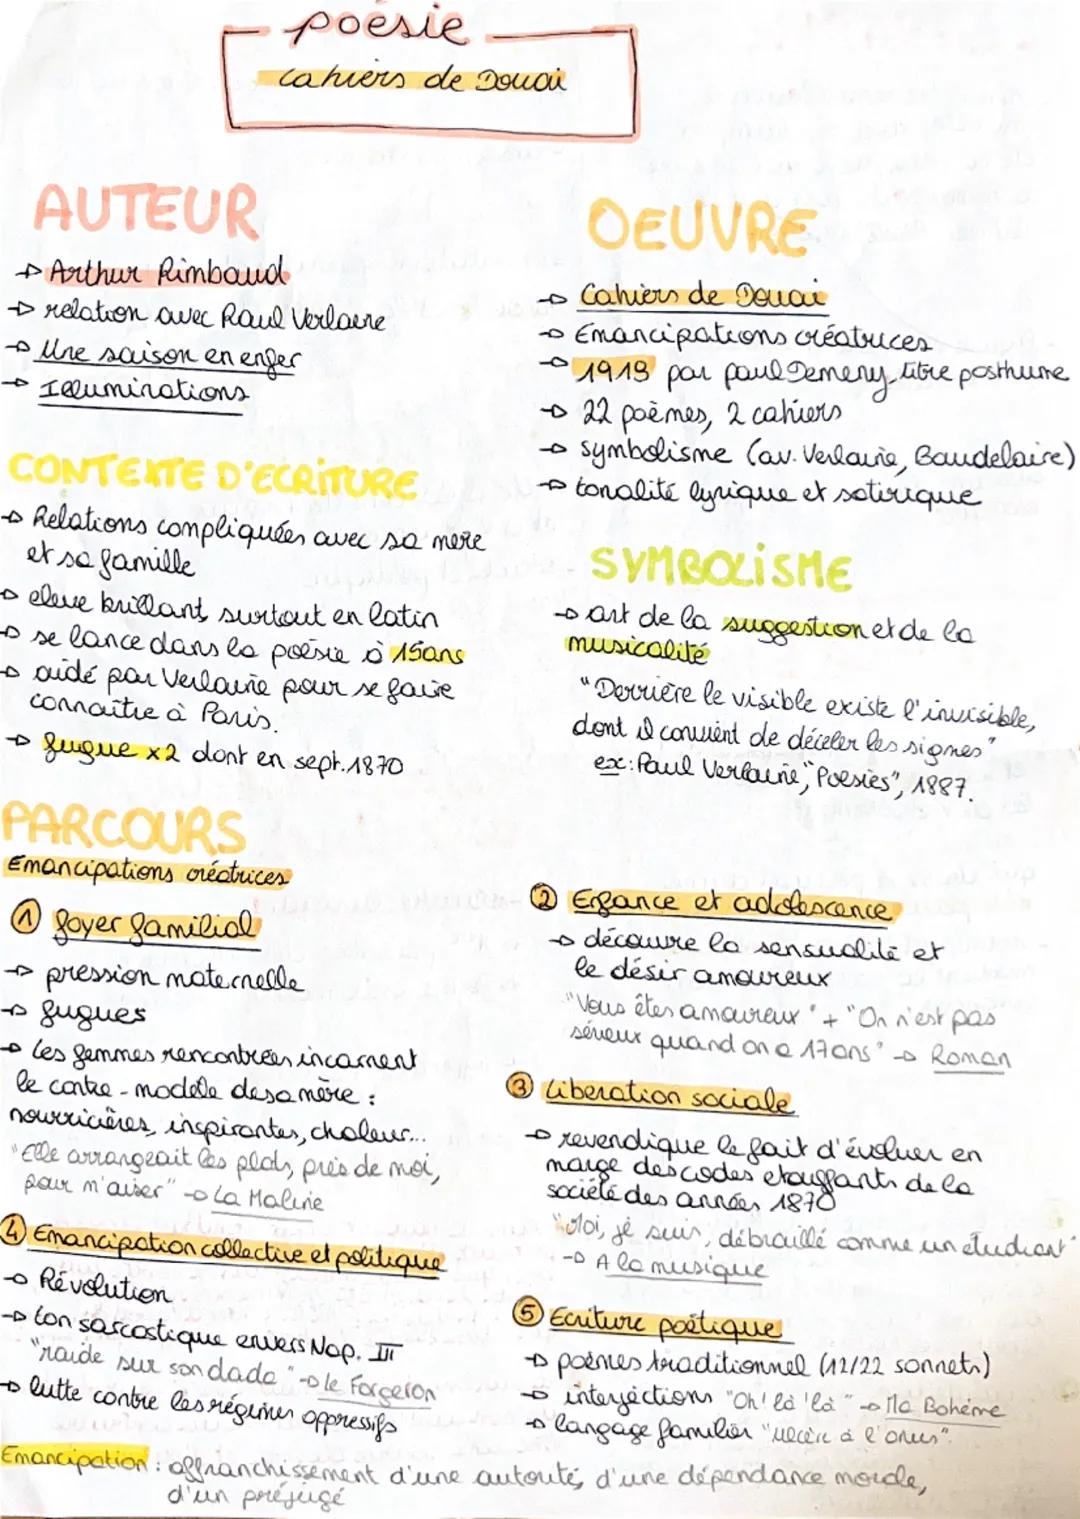 poésie
Cahiers de Douai
AUTEUR
→ Arthur Rimbaud
→ relation avec Paul Verlaine
→ Une saison en enfer
→ Illuminations
CONTEXTE D'ECRITURE
→ Relations compliquées avec sa mère
et sa famille
→ eleve brillant, surtout en latin
→ se lance dans la poésie à 15ans
→ aidé par Verlaine pour se faire
connaître à Paris.
→ fugue x2 dont en sept. 1870
OEUVRE
→ Cahiers de Douai
→ Emancipations créatrices
→ 1919 par paul Demeny, titre posthume
→ 22 poèmes, 2 cahiers
→ symbolisme (av. Verlaine, Baudelaire)
→ tonalité lyrique et satirique
SYMBOLISME
→ art de la suggestion et de la
musicalité
"Derrière le visible existe l'invisible,
dont il convient de déceler les signes"
ex: Paul Verlaine, "Poésies", 1887.
PARCOURS
Emancipations créatrices
① foyer familial
→ pression maternelle
→ fugues
→ les femmes rencontrées incarnent
le contre-modèle de sa mère :
nourricières, inspirantes, chaleur...
"Elle arrangeait les plats, près de moi,
pour m'aiser" → La Maline
② Enfance et adolescence
→ découvre la sensualité et
le désir amoureux
"Vous êtes amoureux" + "On n'est pas
sérieux quand on a 17ans" → Roman
③ Liberation sociale
→ revendique le fait d'évoluer en
marge des codes étouffants de la
société des années 1870
"Moi, je suis, débraillé comme un étudiant"
→ A la musique
④ Emancipation collective et politique
→ Révolution
→ ton sarcastique envers Nap. III
"raide sur son dada" → le Forgeron
→ lutte contre les régimes oppressifs
⑤ Ecriture poétique
→ poèmes traditionnel (12/22 sonnets)
→ interjections "Oh! là là" → Ma Bohème
→ langage familier "ulcère à l'anus".
Emancipation : affranchissement d'une autorité, d'une dépendance morale,
d'un préjugé